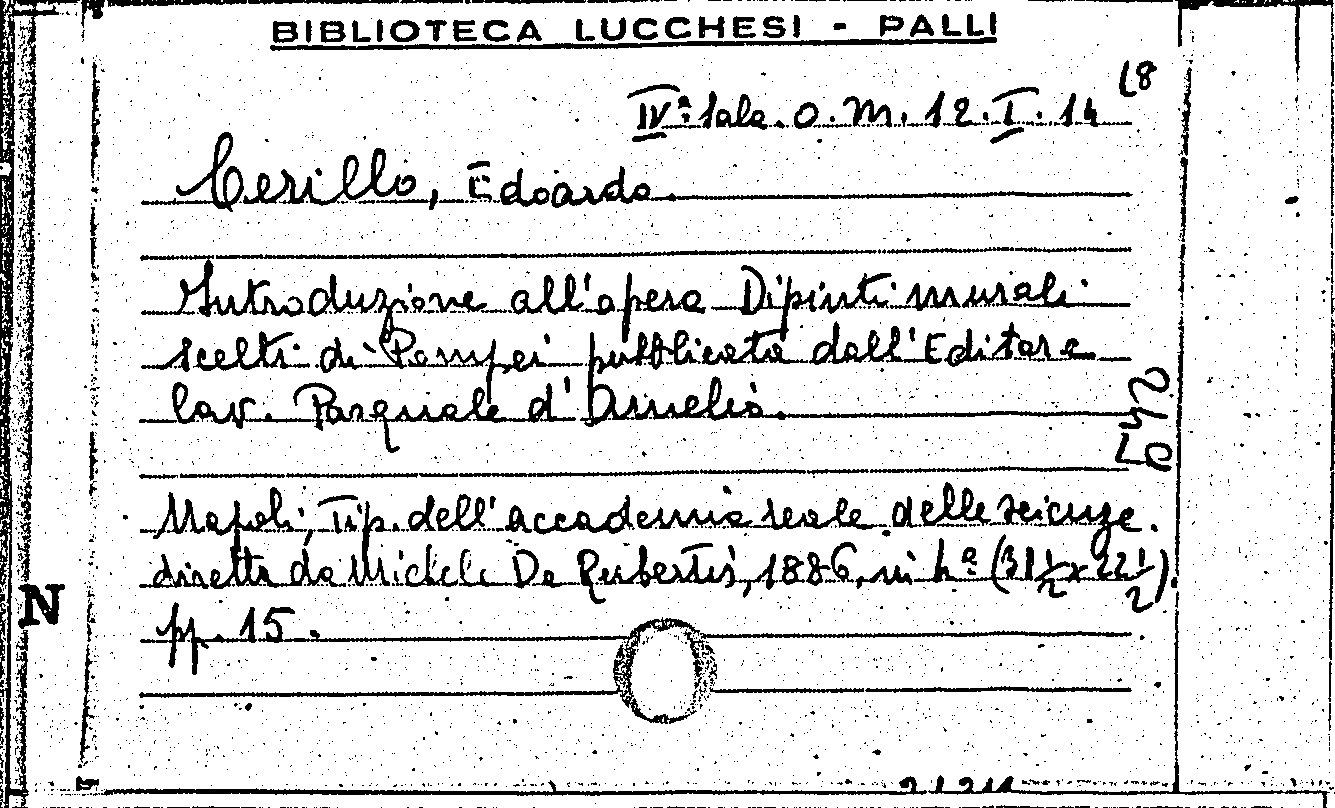 BIBLIOTECA LUCCHESI - PALLI
IVª Sala. O. M. 12. I. 14
Cerillo, Edoardo.
Introduzione all'opera Dipinti murali
scelti di Pompei pubblicata dall'Editore
Cav. Pasquale d'Amelio.
Napoli, Tip. dell'accademia reale delle scienze.
diretta da Michele De Rubertis, 1886, in 4º (31 1/2 x 22 1/2).
pp. 15.
N